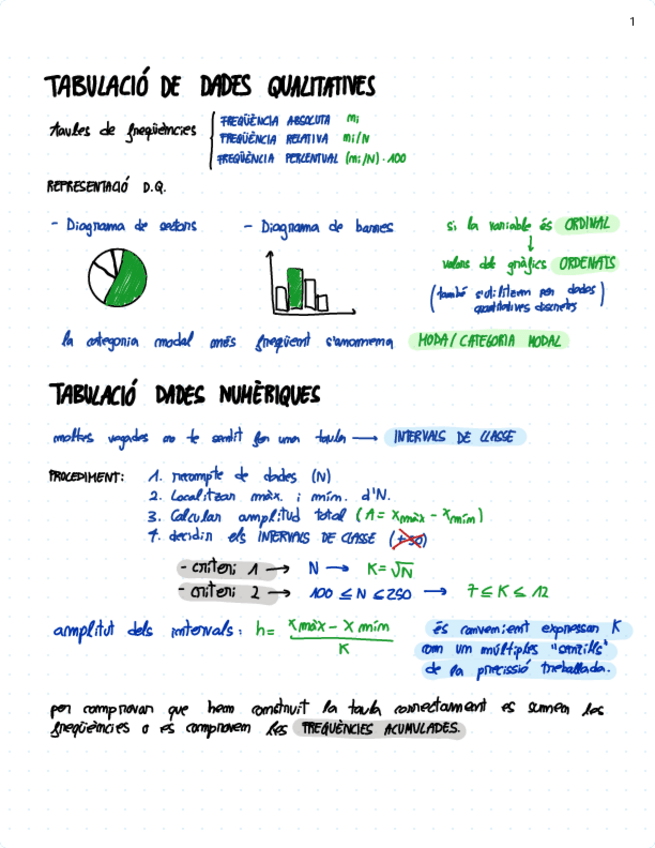 1
TABULACIÓ DE DADES QUALITATIVES
taules de freqüències
FREQÜÈNCIA ABSOLUTA mi
FREQÜÈNCIA RELATIVA mi/N
FREQÜÈNCIA PERCENTUAL (mi/N)·100
REPRESENTACIÓ D.Q.
- Diagrama de sectors
- Diagrama de barres
si la variable és ORDINAL
↓
valors dels gràfics ORDENATS
(també s'utilitzem per dades
quantitatives discretes)
la categoria modal més freqüent s'anomena MODA/CATEGORIA MODAL
TABULACIÓ DADES NUMÈRIQUES
moltes vegades no te sentit fer una taula → INTERVALS DE CLASSE
PROCEDIMENT: 1. recompte de dades (N)
2. Localitzar màx. i mím. d'N.
3. Calcular amplitud total (A = xmàx - xmím)
4. decidir els INTERVALS DE CLASSE
- criteri 1 → N → K=√N
- criteri 2 → 100 ≤ N ≤ 250 → 7 ≤ K ≤ 12
amplitut dels intervals: h= xmàx - x mím / K
és convenient expressar K
com um múltiples "senzills"
de la precissió treballada.
per comprovar que hem construit la taula correctament es sumen les
freqüències o es comprovem les FREQÜÈNCIES ACUMULADES.